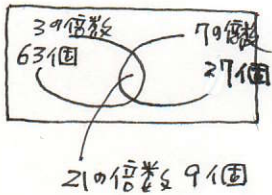 3の倍数
63個
7の倍数
27個
21の倍数 9個